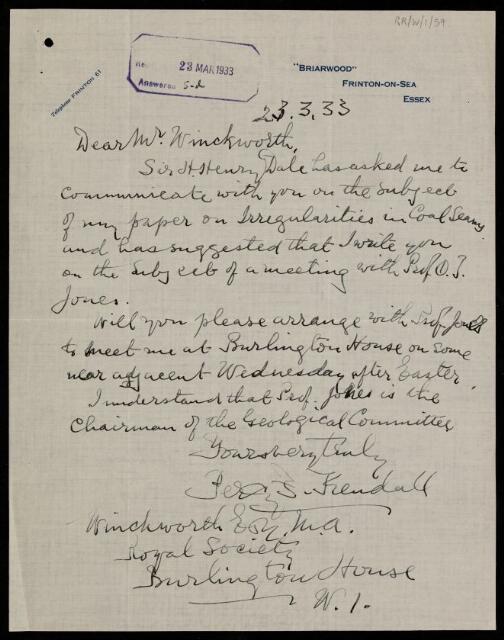 RR/W/1/59
Telephone FRINTON 61
23 MAR 1933
Answered
"BRIARWOOD"
FRINTON-ON-SEA
ESSEX
23.3.33
Dear Mr. Winckworth,
Sir H. Henry Dale has asked me to
communicate with you on the subject
of my paper on Irregularities in Coal Seams
and has suggested that I write you
on the subject of a meeting with Prof. O.T.
Jones.
Will you please arrange with Prof. Jones
to meet me at Burlington House on some
near adjacent Wednesday after Easter
I understand that Prof. Jones is the
Chairman of the Geological Committee
Yours very truly
Percy F. Kendall
Winckworth Esq. M.A.
Royal Society
Burlington House
W.1.